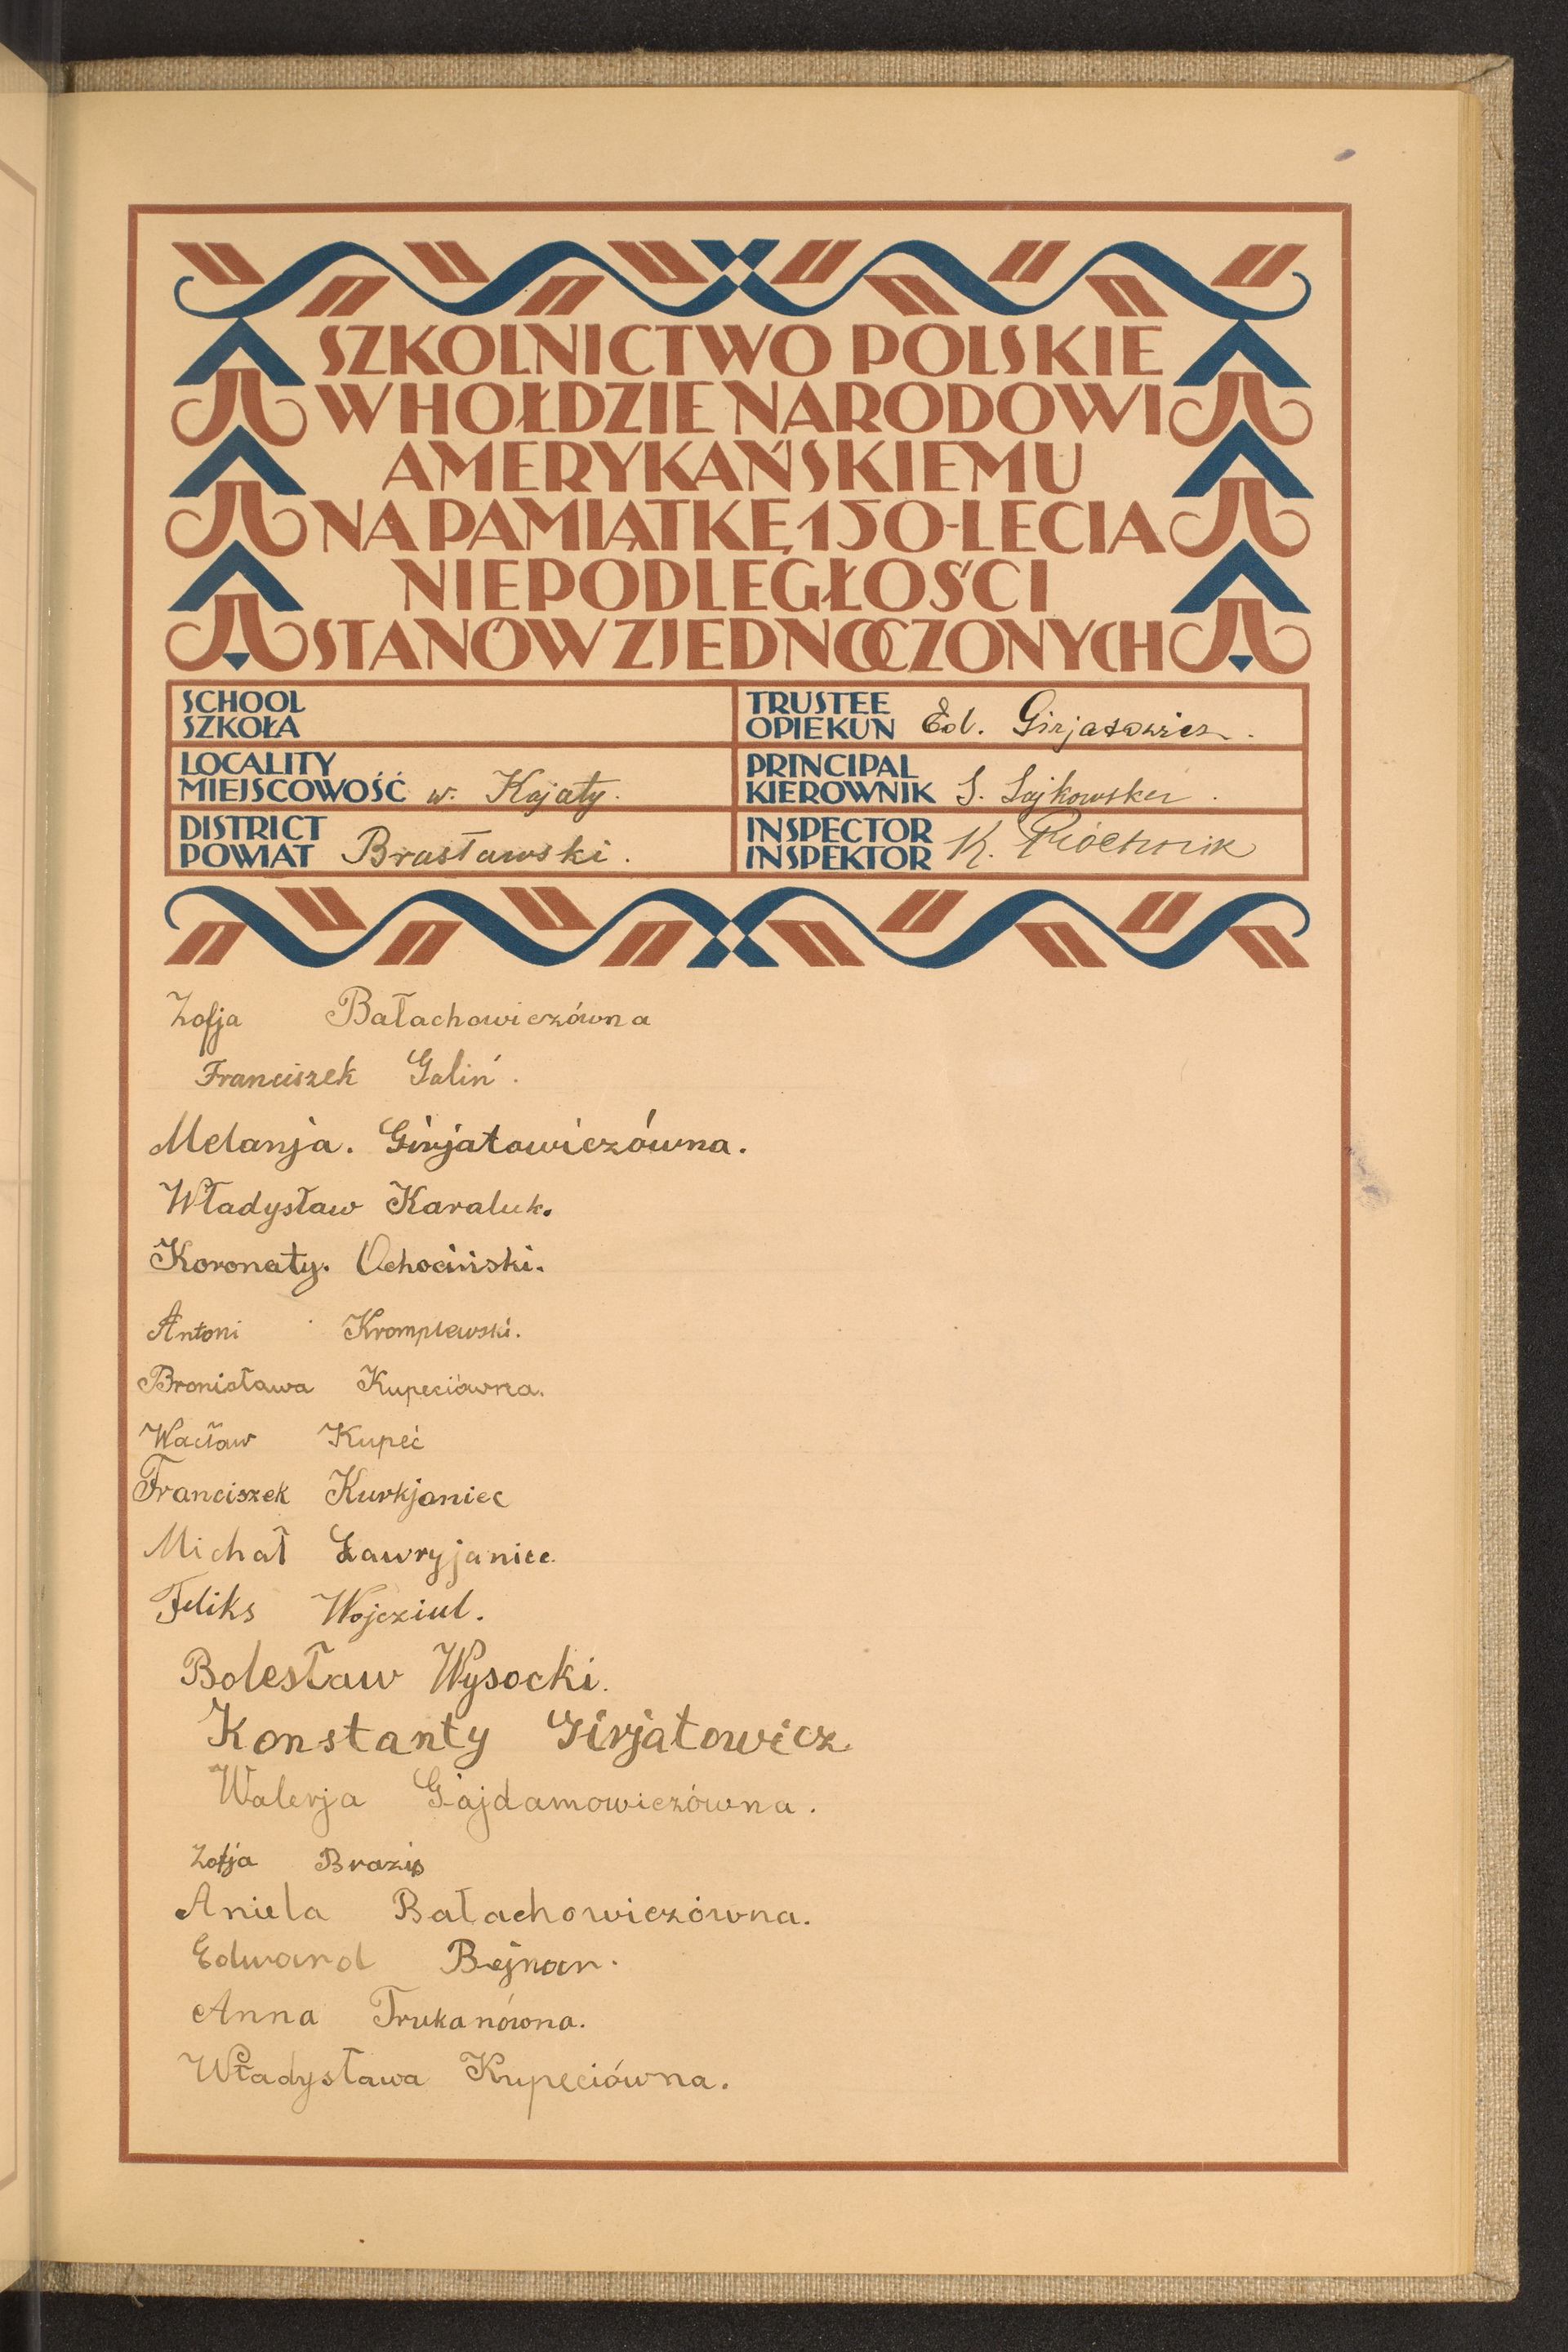 SZKOLNICTWO POLSKIE
W HOŁDZIE NARODOWI
AMERYKAŃSKIEMU
NA PAMIĄTKĘ 150-LECIA
NIEPODLEGŁOŚCI
STANÓW ZJEDNOCZONYCH
SCHOOL
SZKOŁA
LOCALITY
MIEJSCOWOŚĆ w. Kajaty.
DISTRICT
POWIAT Brasławski.
TRUSTEE
OPIEKUN Ed. Girjatowicz.
PRINCIPAL
KIEROWNIK S.
INSPECTOR
INSPEKTOR K.
Zofja Bałachowiczówna
Franciszek Galiń.
Melanja. Girjatowiczówna.
Władysław Karaluk.
Koronaty. Ochociński.
Antoni Kromplewski.
Bronisława Kupeciówna.
Wacław Kupeć
Franciszek Kurkjaniec
Michał Ławryjaniec.
Feliks Wojcziul.
Bolesław Wysocki.
Konstanty Girjatowicz
Walerja Gajdamowiczówna.
Zofja Brazis
Aniela Bałachowiczówna.
Edward Bejnar.
Anna Trukanówna.
Władysława Kupeciówna.